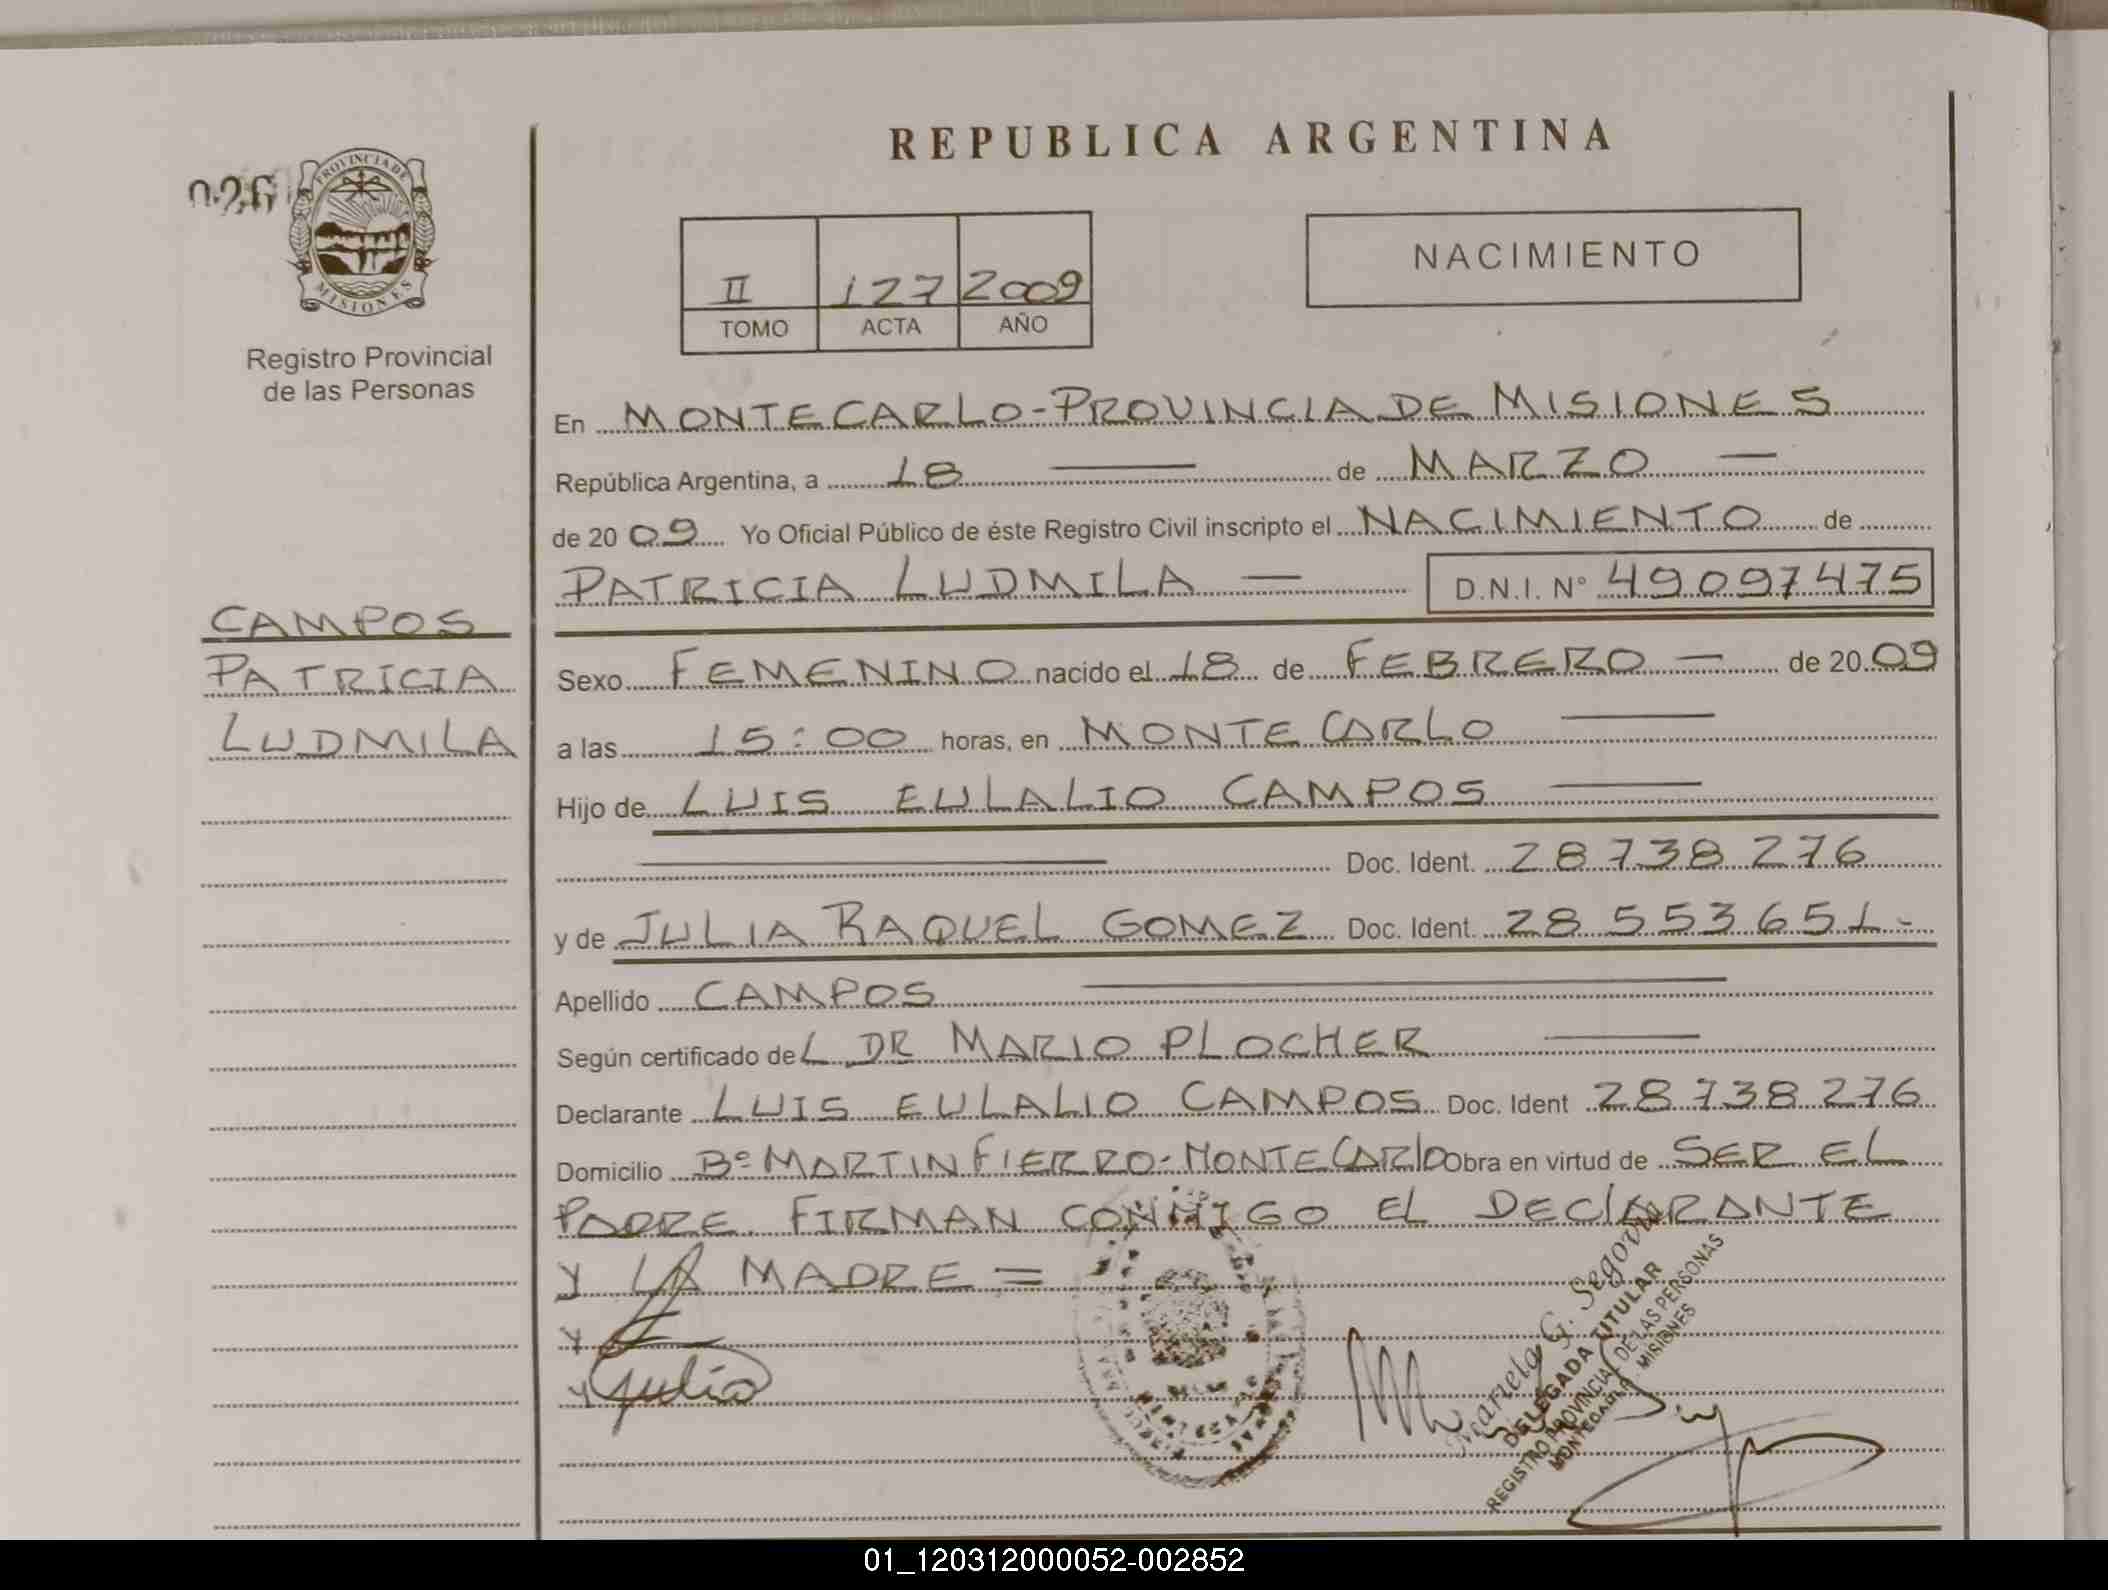 REPUBLICA ARGENTINA
026
PROVINCIA DE
MISIONES
Registro Provincial
de las Personas
II 127 2009
TOMO ACTA AÑO
NACIMIENTO
En MONTECARLO-PROVINCIA DE MISIONES
República Argentina, a 18 — de MARZO —
de 2009 Yo Oficial Público de éste Registro Civil inscripto el NACIMIENTO de
PATRICIA LUDMILA — D.N.I. Nº 49097475
CAMPOS
PATRICIA
LUDMILA
Sexo FEMENINO nacido el 18 de FEBRERO — de 2009
a las 15:00 horas, en MONTE CARLO —
Hijo de LUIS EULALIO CAMPOS —
— Doc. Ident. 28738276
y de JULIA RAQUEL GOMEZ Doc. Ident. 28553651-
Apellido CAMPOS —
Según certificado deL DR MARIO PLOCHER —
Declarante LUIS EULALIO CAMPOS Doc. Ident 28738276
Domicilio Bº MARTIN FIERRO-MONTECARlO Obra en virtud de SER EL
PADRE. FIRMAN CONMIGO EL DEClARANTE
Y LA MADRE =
Y
Y Julia
Mariela G. Segovia
DELEGADA TITULAR
REGISTRO PROVINCIAL DE LAS PERSONAS
MONTECARLO - MISIONES
01_120312000052-002852